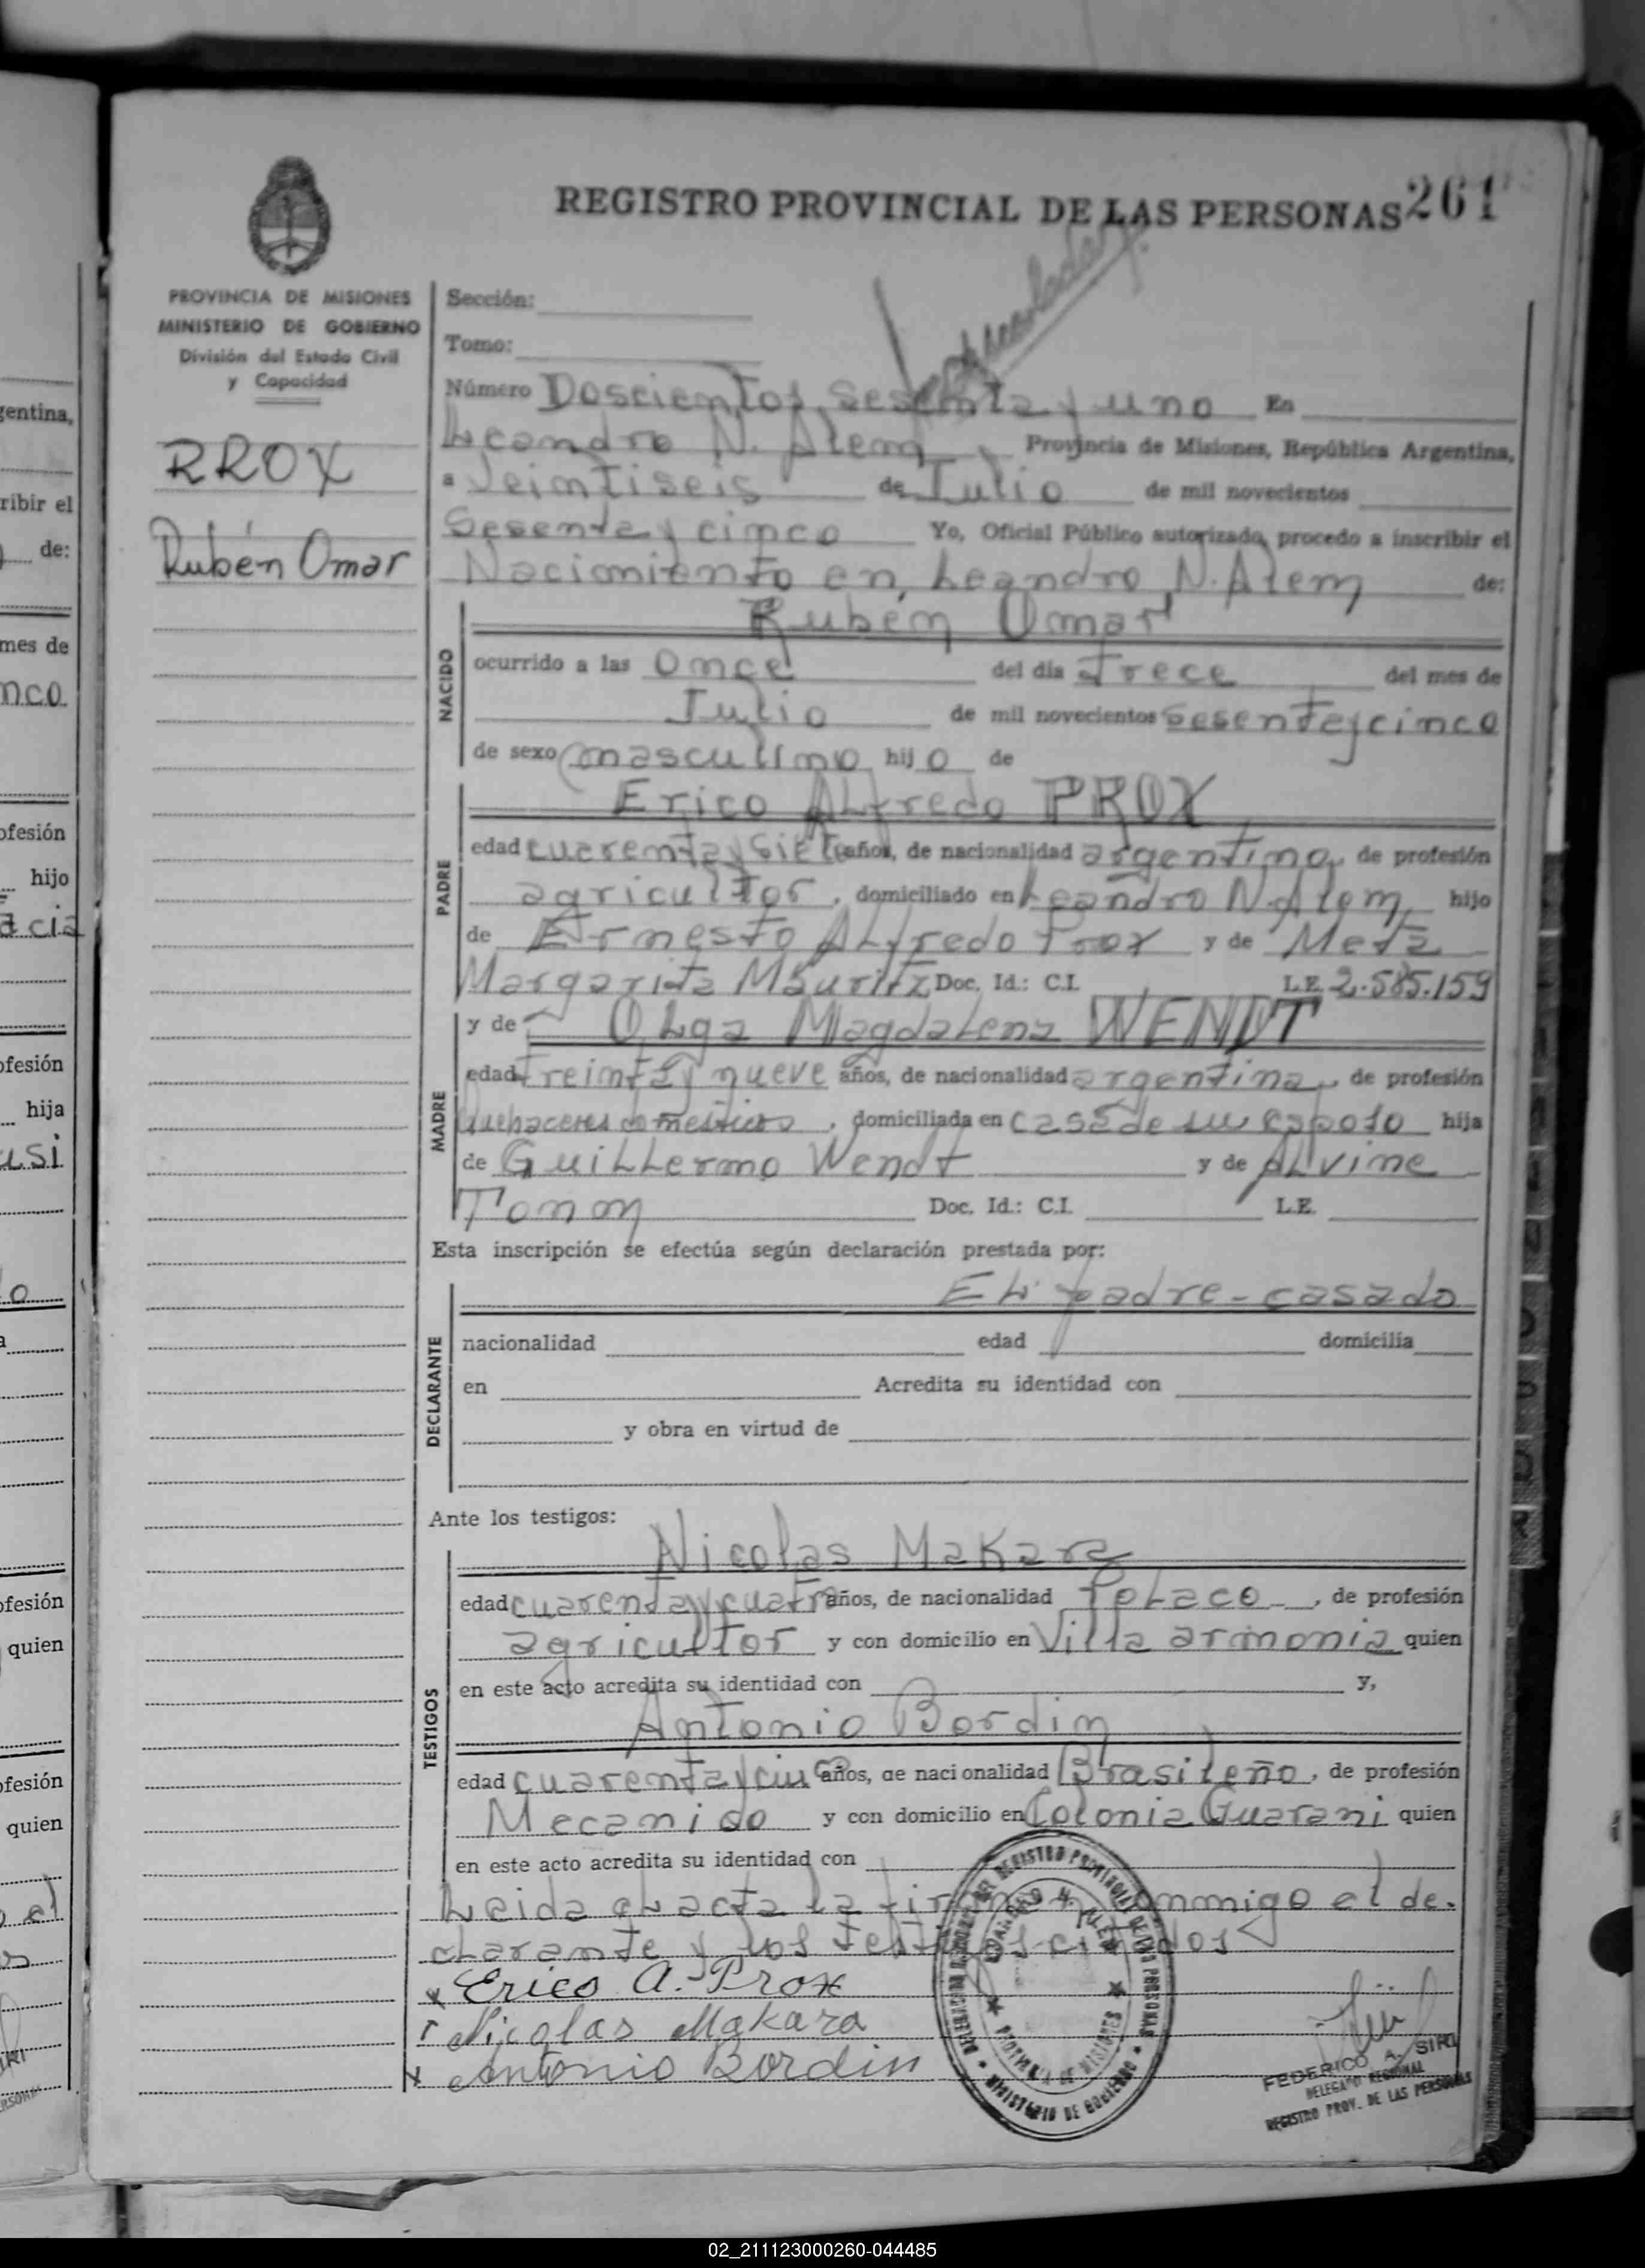 REGISTRO PROVINCIAL DE LAS PERSONAS 261
PROVINCIA DE MISIONES
MINISTERIO DE GOBIERNO
División del Estado Civil
y Capacidad
RROX
Rubén Omar
Sección:
Tomo:
Número Doscientos sesenta y uno En
Leandro N. Alem, Provincia de Misiones, República Argentina,
a Veintiseis de Julio de mil novecientos
Sesenta y cinco Yo, Oficial Público autorizado, procedo a inscribir el
Nacimiento en, Leandro N. Alem de:
NACIDO
Rubén Omar
ocurrido a las Once del día Trece del mes de
Julio de mil novecientos Sesenta y cinco
de sexo masculino hijo de
PADRE
Erico Alfredo PROX
edad cuarenta y siete años, de nacionalidad argentino, de profesión
agricultor, domiciliado en Leandro N. Alem, hijo
de Ernesto Alfredo Prox y de Meta
Margarita Mauritz Doc. Id.: C.I. L.E. 2.585.159
MADRE
y de Olga Magdalena WENDT
edad Treinta y nueve años, de nacionalidad argentina, de profesión
Quehaceres domesticos, domiciliada en casa de su esposo hija
de Guillermo Wendt y de Alvine
Tonon Doc. Id.: C.I. L.E.
Esta inscripción se efectúa según declaración prestada por:
DECLARANTE
El padre - casado
nacionalidad edad domicilia
en Acredita su identidad con
y obra en virtud de
Ante los testigos:
TESTIGOS
Nicolas Makara
edad cuarenta y cuatro años, de nacionalidad Polaco, de profesión
agricultor y con domicilio en Villa armonia quien
en este acto acredita su identidad con y,
Antonio Bordin
edad cuarenta y cin años, de nacionalidad Brasileño, de profesión
Mecanido y con domicilio en Colonia Guarani quien
en este acto acredita su identidad con
Leida el acta la firman conmigo el de-
clarante y los testigos citados
x Erico A. Prox
Nicolas Makara
x Antonio Bordin
REGISTRO PROVINCIAL DE LAS PERSONAS
LEANDRO N. ALEM
PROVINCIA DE MISIONES
MINISTERIO DE GOBIERNO
FEDERICO A. SIRI
DELEGADO REGIONAL
REGISTRO PROV. DE LAS PERSONAS
02_211123000260-044485